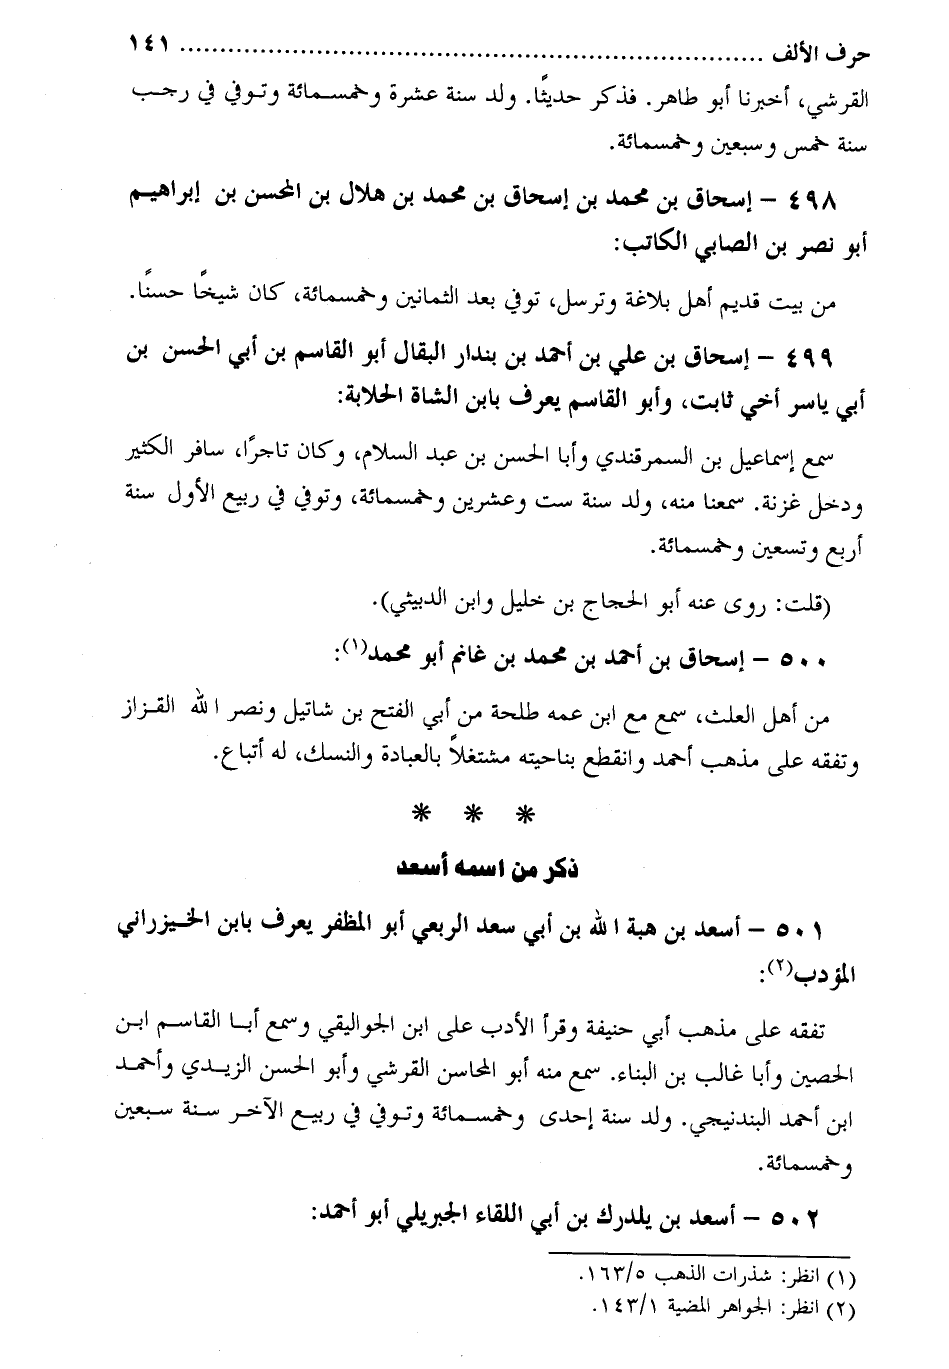 حرف الألف ............................................................ ١٤١
القرشي، أخبرنا أبو طاهر. فذكر حديثًا. ولد سنة عشرة وخمسمائة وتوفي في رجب
سنة خمس وسبعين وخمسمائة.
٤٩٨ – إسحاق بن محمد بن إسحاق بن محمد بن هلال بن المحسن بن إبراهيم
أبو نصر بن الصابي الكاتب:
من بيت قديم أهل بلاغة وترسل، توفي بعد الثمانين وخمسمائة، كان شيخًا حسنًا.
٤٩٩ – إسحاق بن علي بن أحمد بن بندار البقال أبو القاسم بن أبي الحسن بن
أبي ياسر أخي ثابت، وأبو القاسم يعرف بابن الشاة الحلابة:
سمع إسماعيل بن السمرقندي وأبا الحسن بن عبد السلام، وكان تاجرًا، سافر الكثير
ودخل غزنة. سمعنا منه، ولد سنة ست وعشرين وخمسمائة، وتوفي في ربيع الأول سنة
أربع وتسعين وخمسمائة.
(قلت: روى عنه أبو الحجاج بن خليل وابن الدبيثي).
٥٠٠ – إسحاق بن أحمد بن محمد بن غانم أبو محمد(١):
من أهل العلث، سمع مع ابن عمه طلحة من أبي الفتح بن شاتيل ونصر الله القزاز
وتفقه على مذهب أحمد وانقطع بناحيته مشتغلاً بالعبادة والنسك، له أتباع.
* * *
ذكر من اسمه أسعد
٥٠١ – أسعد بن هبة الله بن أبي سعد الربعي أبو المظفر يعرف بابن الخيزراني
المؤدب(٢):
تفقه على مذهب أبي حنيفة وقرأ الأدب على ابن الجواليقي وسمع أبا القاسم ابن
الحصين وأبا غالب بن البناء. سمع منه أبو المحاسن القرشي وأبو الحسن الزيدي وأحمد
ابن أحمد البندنيجي. ولد سنة إحدى وخمسمائة وتوفي في ربيع الآخر سنة سبعين
وخمسمائة.
٥٠٢ – أسعد بن يلدرك بن أبي اللقاء الجبريلي أبو أحمد:
(١) انظر: شذرات الذهب ١٦٣/٥.
(٢) انظر: الجواهر المضية ١٤٣/١.